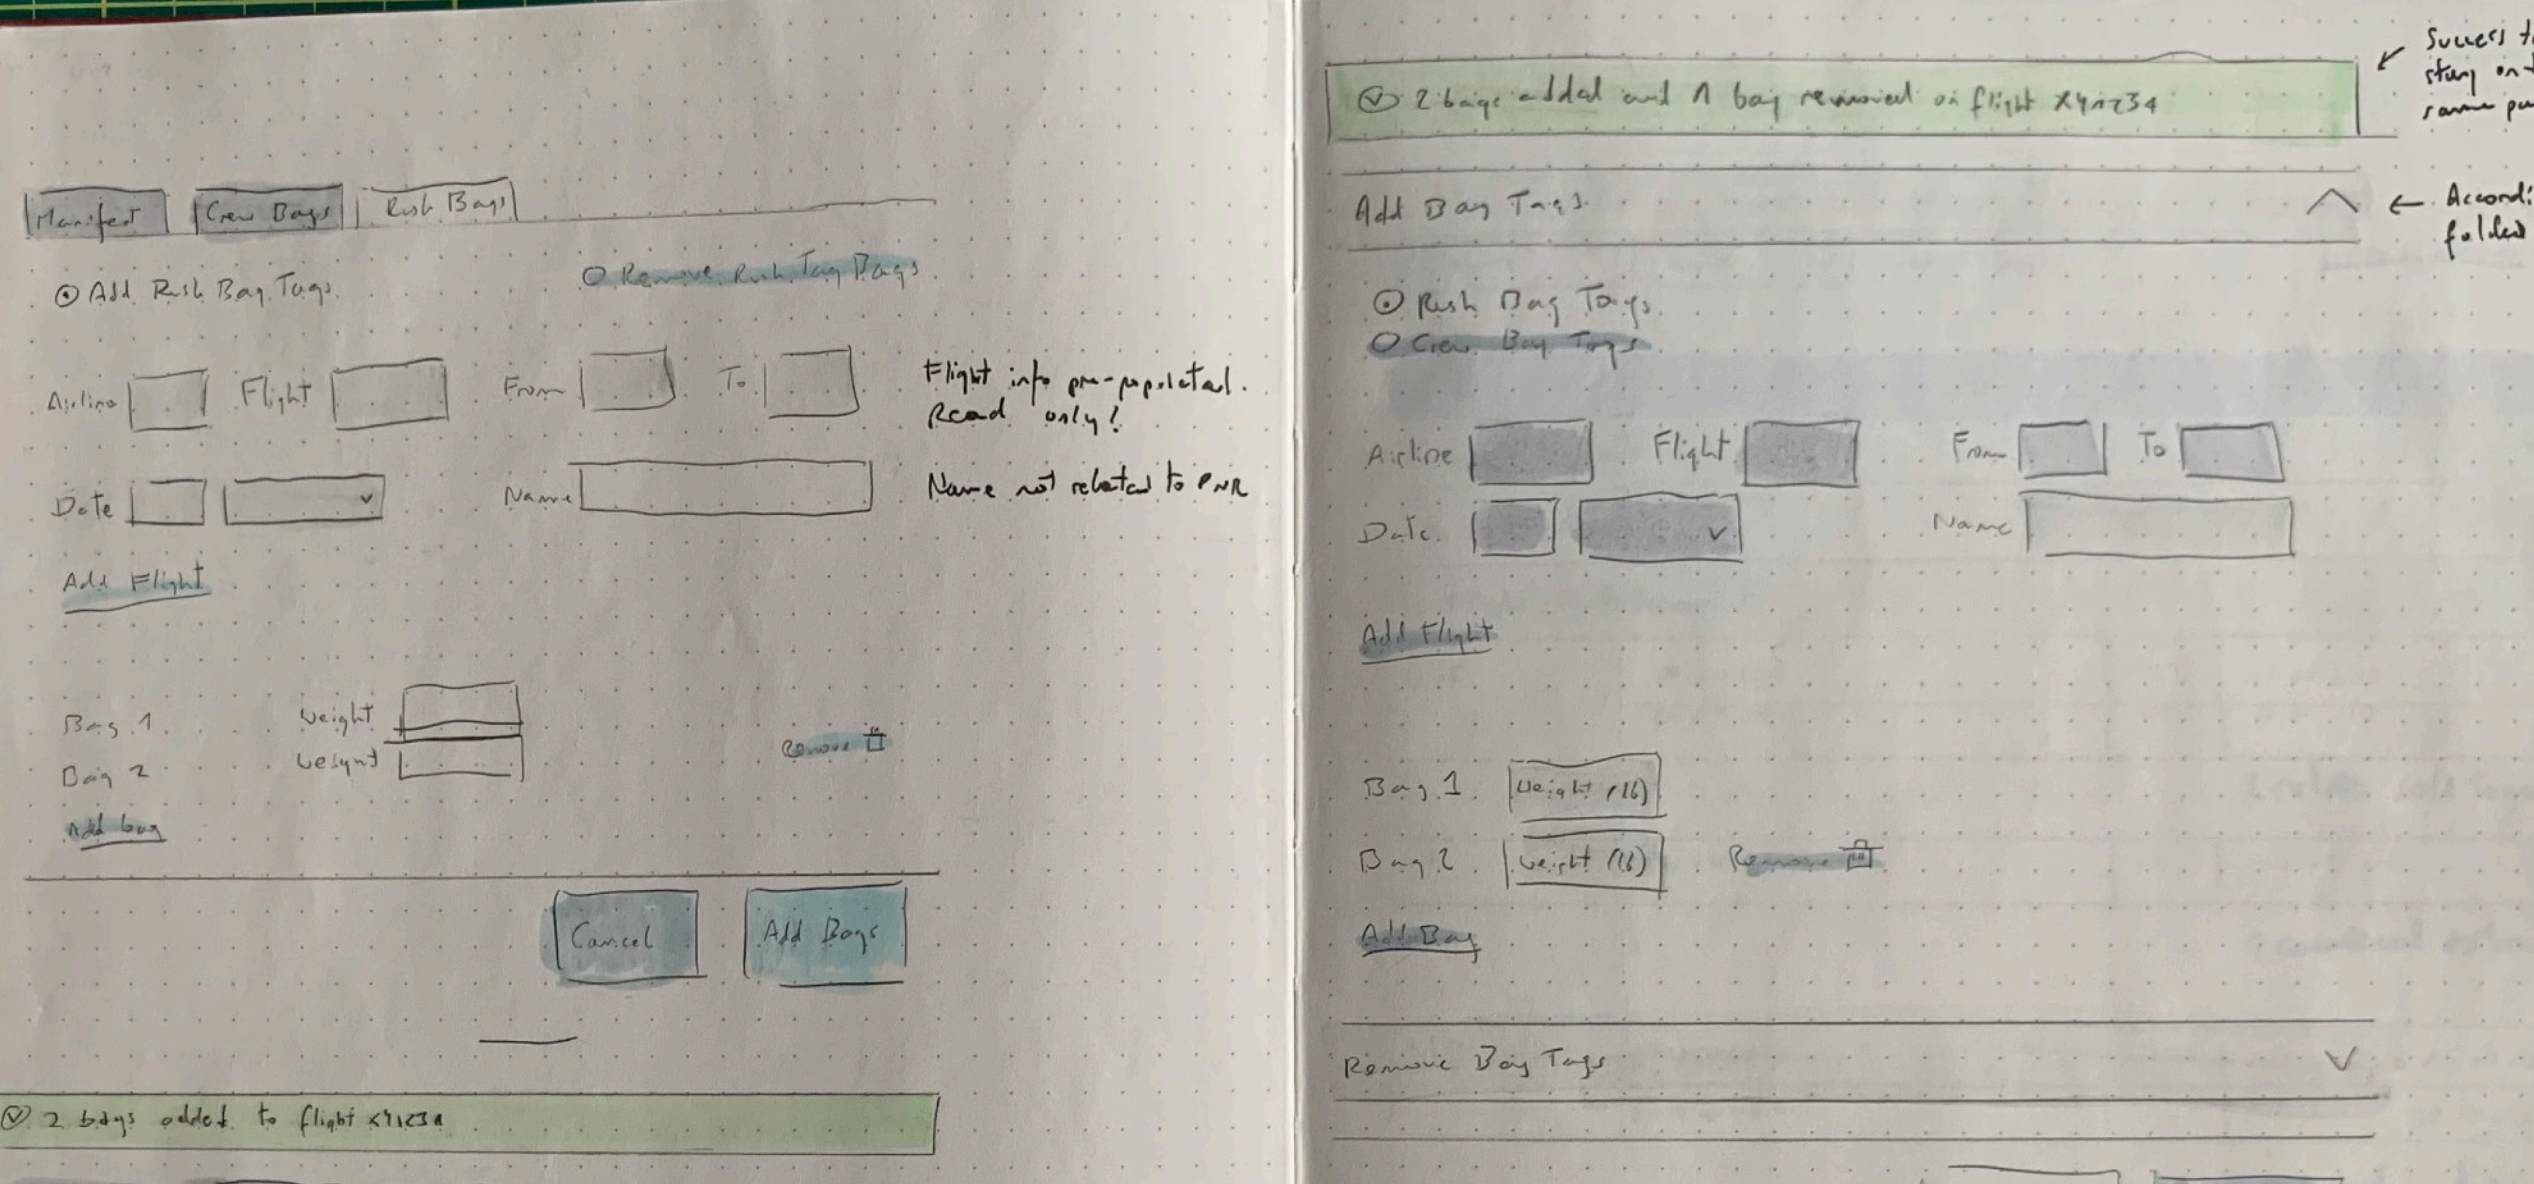 Manifest Crew Bags Rush Bags
Add Rush Bag Tags
Remove Rush Tag Bags
Airline Flight From To
Flight info pre-populated.
Read only!
Date Name
Name not related to PNR
Add Flight
Bag 1 weight
Remove
Bag 2 weight
Add bag
Cancel Add Bags
2 bags added to flight XY1234
2 bags added and 1 bag removed on flight XY1234
Success
stay on
same
Add Bag Tags
folded
Rush Bag Tags
Crew Bag Tags
Airline Flight From To
Date Name
Add Flight
Bag 1 Weight (lb)
Bag 2 Weight (lb) Remove
Add Bag
Remove Bag Tags